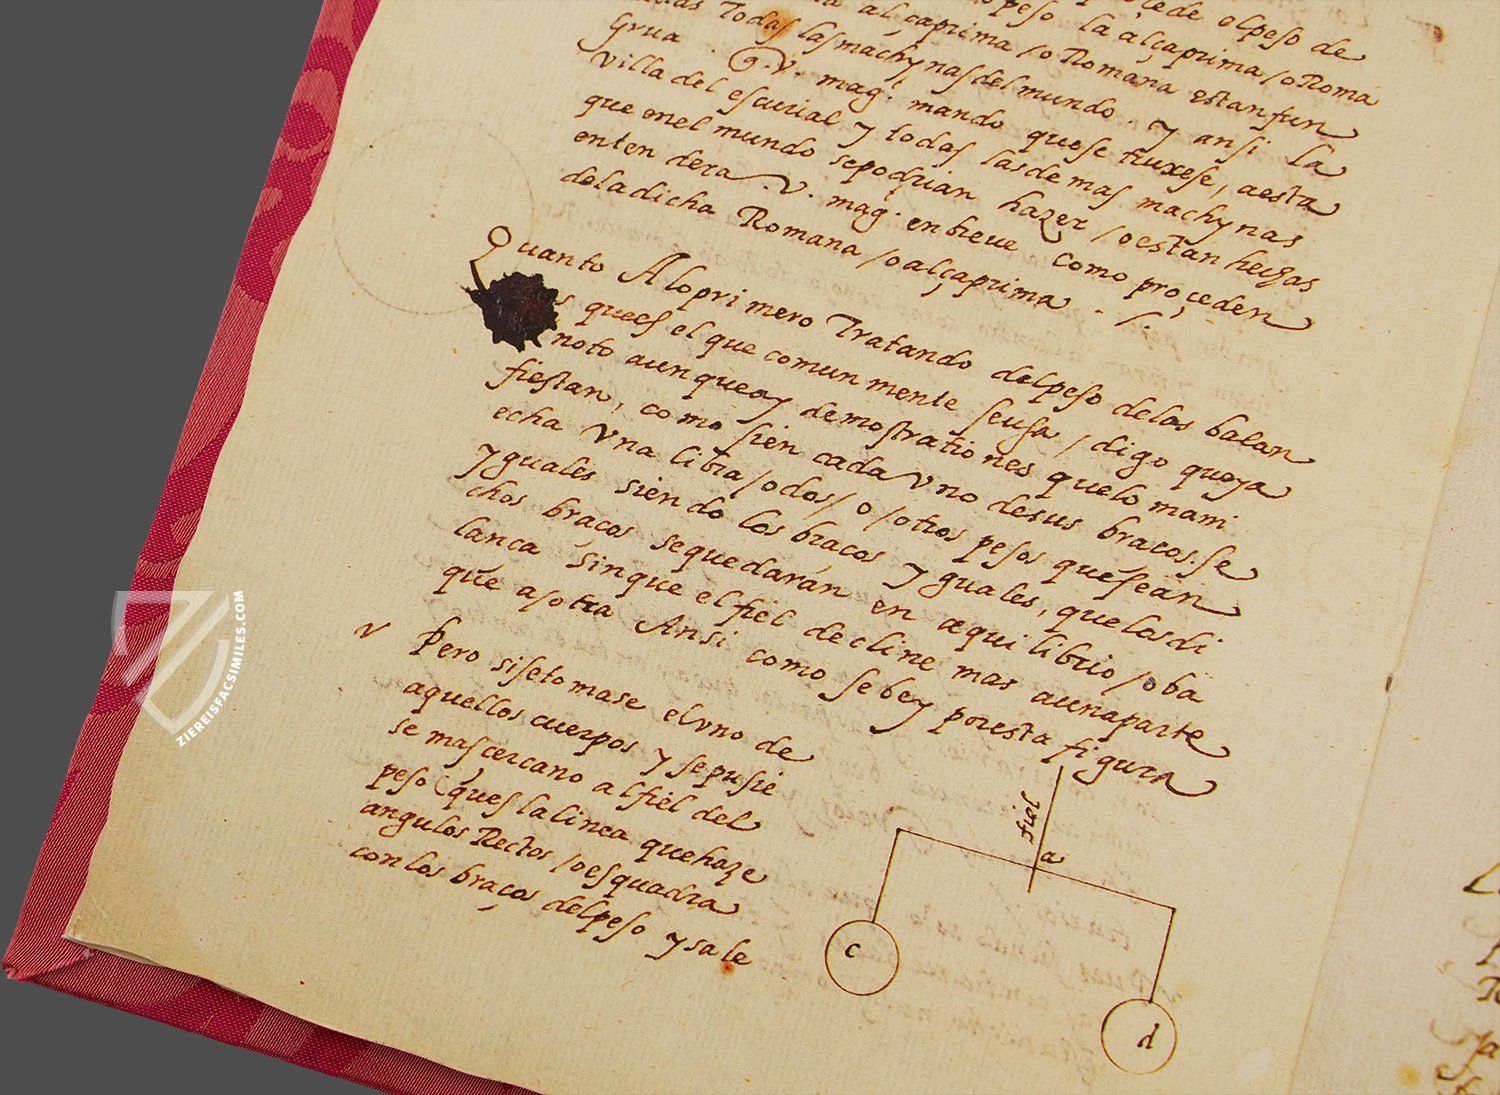 peso la alçaprima / o Roma
cede el peso de
al çaprima / o Romana estan fun
das Todas las machynas del mundo. y ansi la
Grua . q. v. mag. mando que se truxese, a esta
villa del escurial y todas las de mas machynas
que en el mundo se podrian hazer / o estan hechas
enten dera . v. mag. en breue como proçeden
de la dicha Romana / o alçaprima . / .
Quanto A lo primero Tratando del peso de las balan
s que es el que comun mente se usa / digo que ya
noto aunque ay demostrationes que lo mani
fiestan, como si en cada vno de sus braços. se
echa vna libra / o dos / o / otros pesos que sean
yguales siendo los braços yguales, que los di
chos braços se quedaran en aequilibrio / o ba
lança sin que el fiel decline mas a una parte
que a sotra Ansi como se bey por esta figura
v Pero si se tomase el vno de
aquellos cuerpos y se pusie
se mas cercano al fiel del
peso (ques la linea que haze
angulos Rectos / o esquadra
con los braços del peso y sale
fiel
a
c
d
ZIEREISFACSIMILES.COM